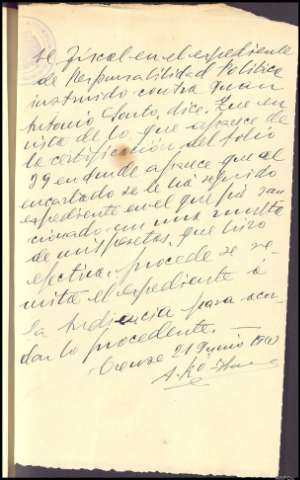 el Fiscal en el expediente
de Responsabilidad Política
instruido contra Juan
Antonio dice: Que en
vista de lo que aparece de
la certificación del folio
39 en donde aparece que al
encartado se le ha seguido
expediente en el que fué san
cionado con una multa
de mil pesetas, que hizo
efectiva, procede se re
mita el expediente á
la Audiencia para acor
dar lo procedente.
Orense 21 Junio